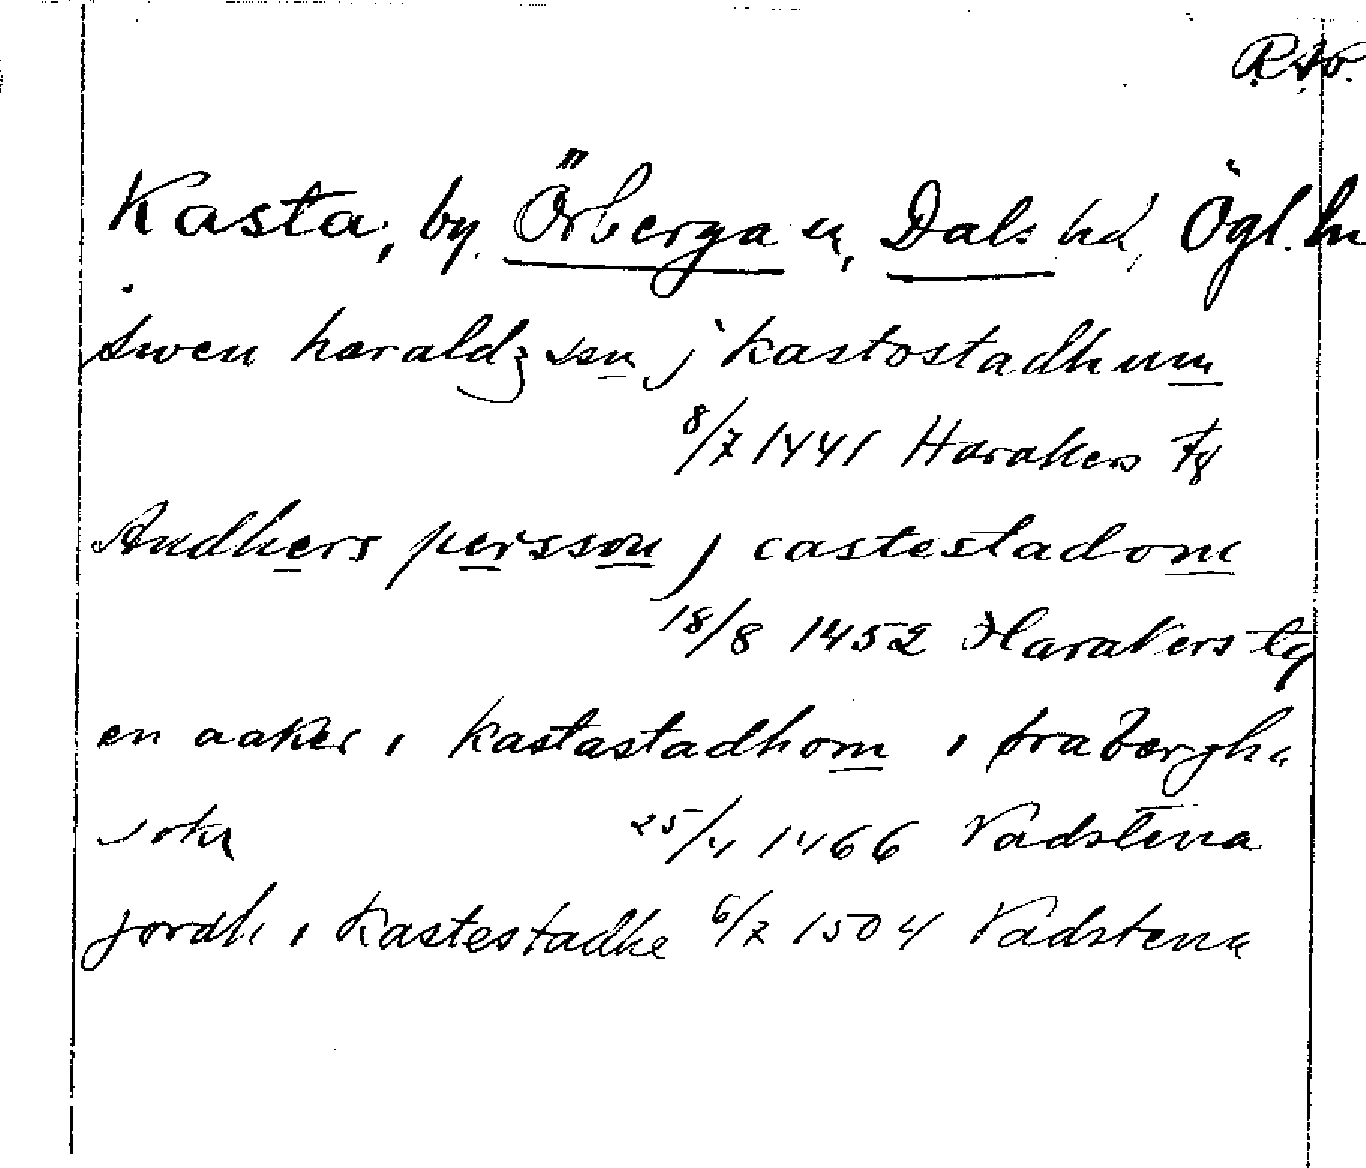 R.A.P.
Kasta, by, Örberga sn, Dals hd, Ögl. ln
swen haraldz son j kastostadhum
8/7 1441 Harakers
Andhers persson j castestadom
18/8 1452 Harakers tg
en aaker i kastastadhom i ørabergha
sokn 25/4 1466 Vadstena
jordh i kastestadhe 6/7 1504 Vadstena